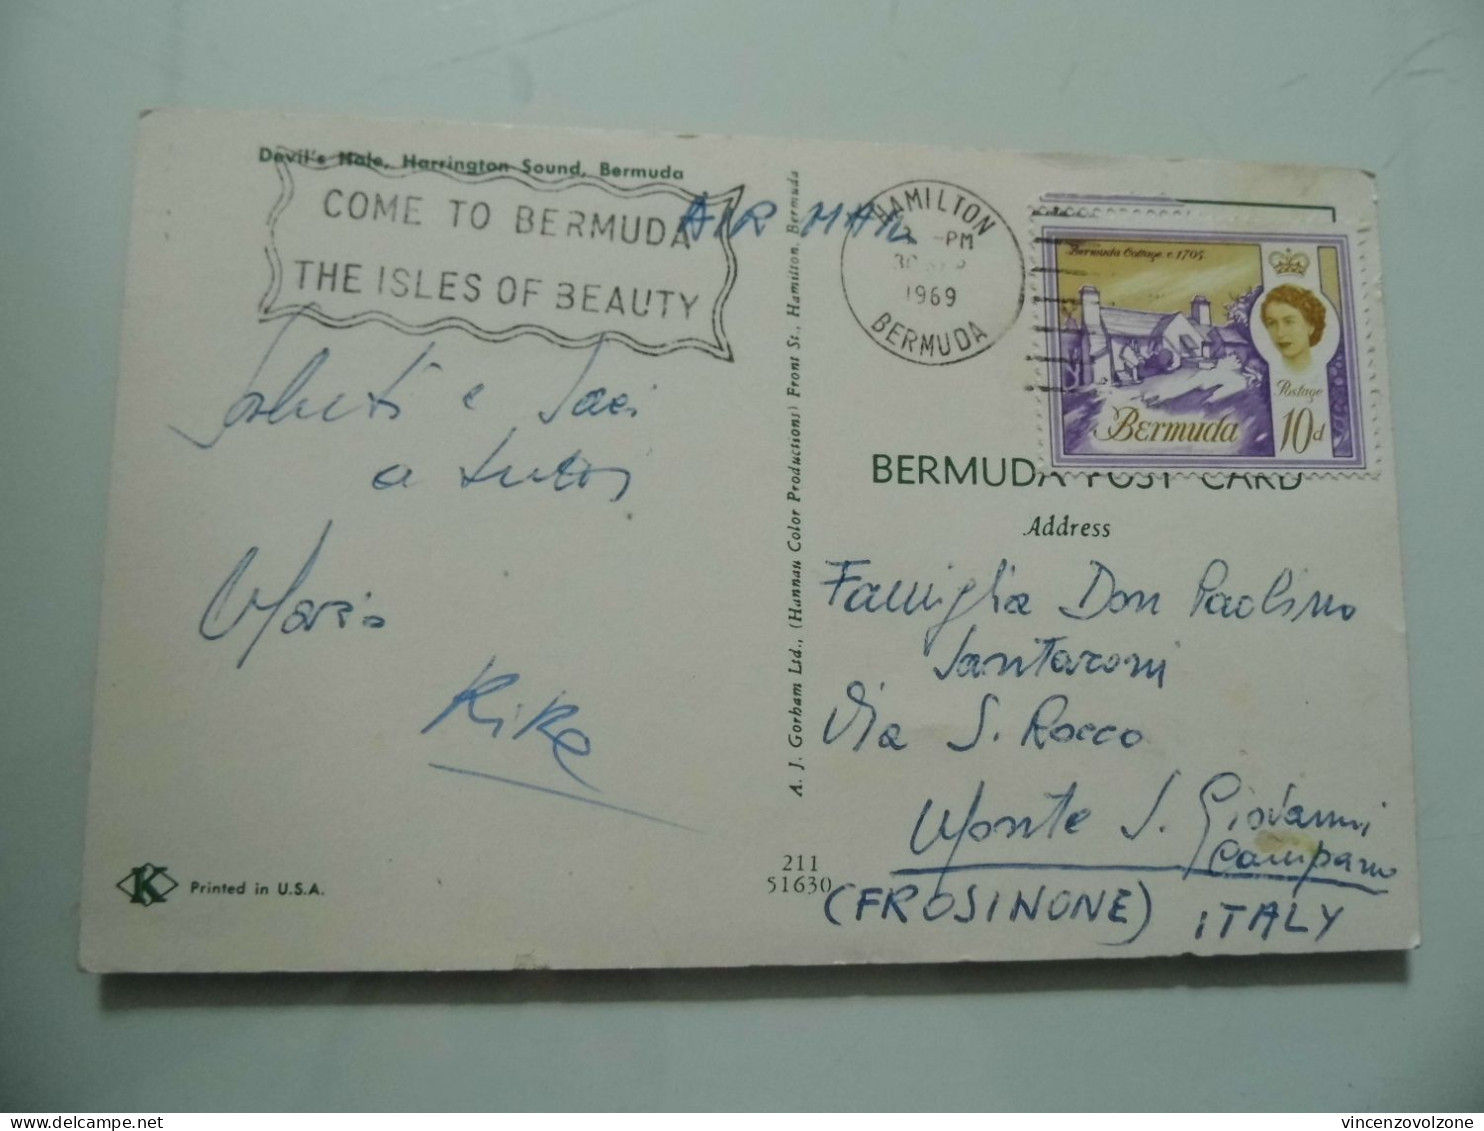 Devil's Hole, Harrington Sound, Bermuda
COME TO BERMUDA
THE ISLES OF BEAUTY
AIR MAIL
HAMILTON
PM
30 SEP
1969
BERMUDA
Bermuda Cottage, c.1705
Postage
Bermuda
10d
Saluti e baci
a tutti
Maria
Kike
A. J. Gorham Ltd., (Hannau Color Productions) Front St., Hamilton, Bermuda
BERMUDA POST CARD
Address
Famiglia Don Paolino
Santaroni
Via S. Rocco
Monte S. Giovanni
Campano
(FROSINONE) ITALY
211
51630
K Printed in U.S.A.
vincenzovolzone